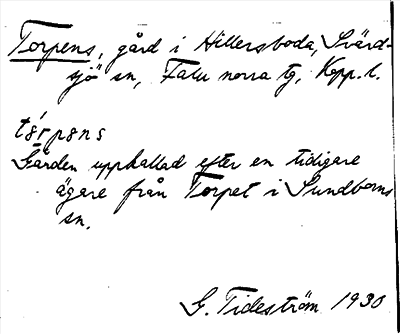 Torpens, gård i Hillersboda, Svärd-
sjö sn, Falu norra tg, Kopp. l.
tórpəns
Gården uppkallad efter en tidigare
ägare från Torpet i Sundborns
sn.
G. Tideström 1930